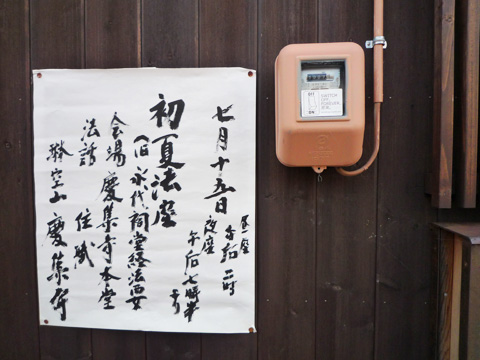 七月十五日
昼座 午后二時
夜座 午后七時半
より
初夏法座
(旧 永代祠堂経法要)
会場 慶集寺本堂
法話 住職
霊空山 慶集寺